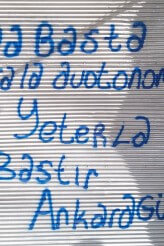 a Basta
ala auotonom
YeterLa
Bastır
AnkaraGü